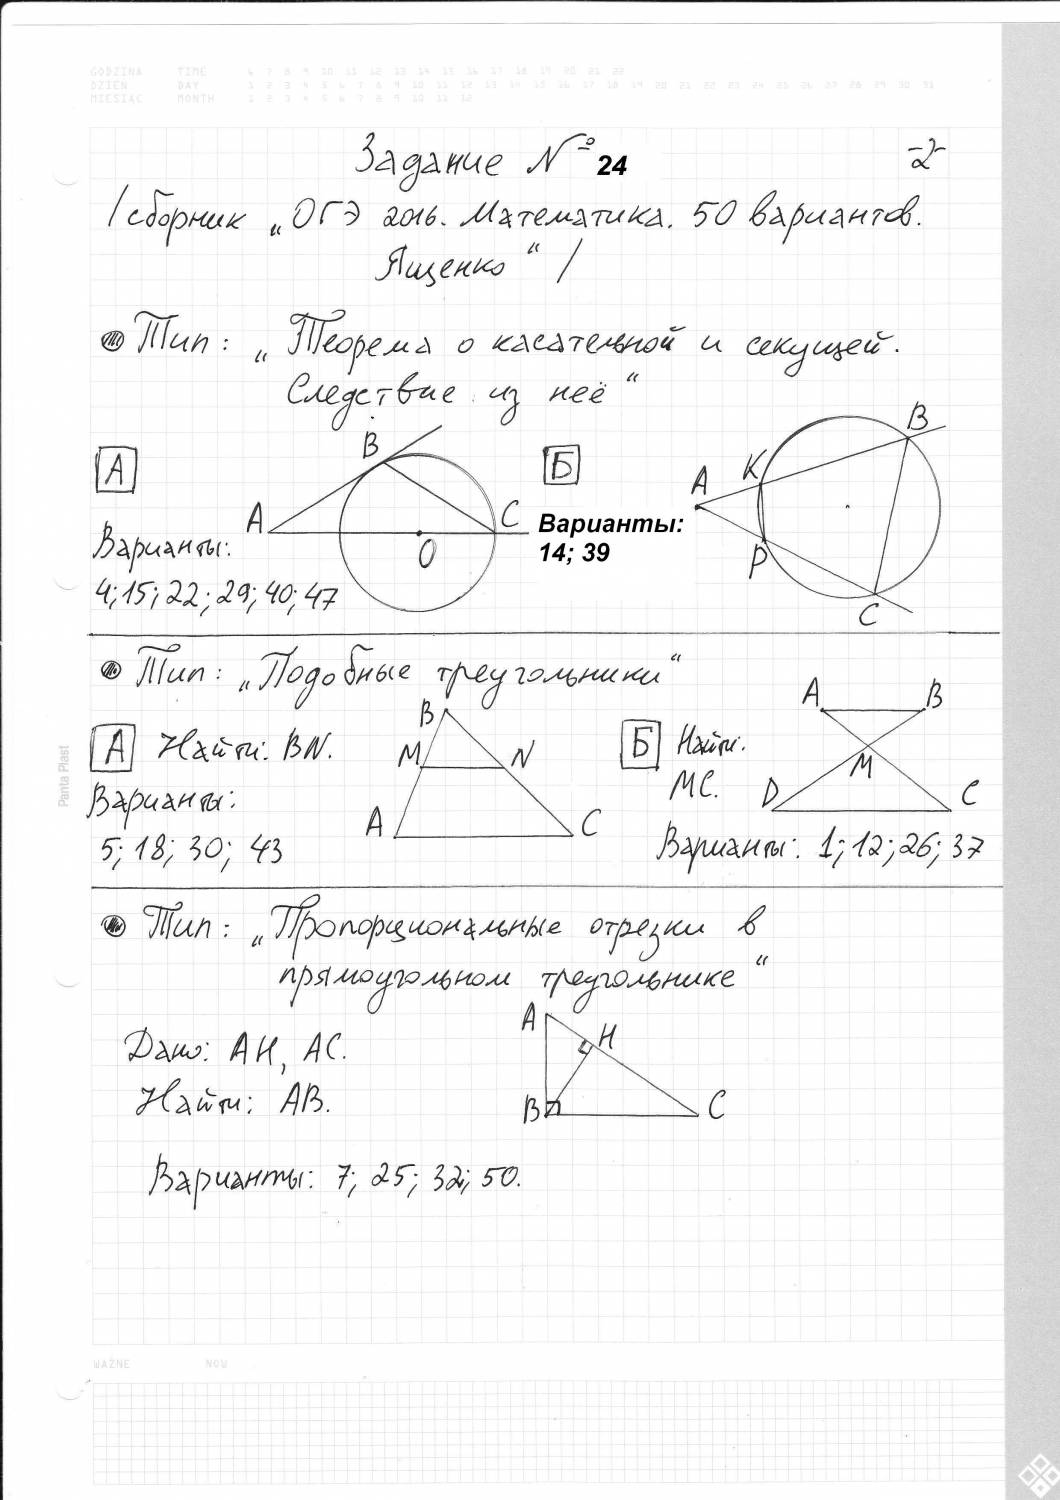 GODZINA TIME 6 7 8 9 10 11 12 13 14 15 16 17 18 19 20 21 22
DZIEŃ DAY 1 2 3 4 5 6 7 8 9 10 11 12 13 14 15 16 17 18 19 20 21 22 23 24 25 26 27 28 29 30 31
MIESIĄC MONTH 1 2 3 4 5 6 7 8 9 10 11 12
Задание № 24
-2-
/сборник „ОГЭ 2016. Математика. 50 вариантов.
Ященко“ /
Тип: „Теорема о касательной и секущей.
Следствие из неё“
А
Варианты:
4; 15; 22; 29; 40; 47
A B C O
Б
Варианты:
14; 39
A K B P C
Тип: „Подобные треугольники“
А Найти: BN.
Варианты:
5; 18; 30; 43
B M N A C
Б Найти:
MC.
A B M D C
Варианты: 1; 12; 26; 37
Тип: „Пропорциональные отрезки в
прямоугольном треугольнике“
Дано: AH, AC.
Найти: AB.
A H B C
Варианты: 7; 25; 32; 50.
Panta Plast
WAŻNE NOW